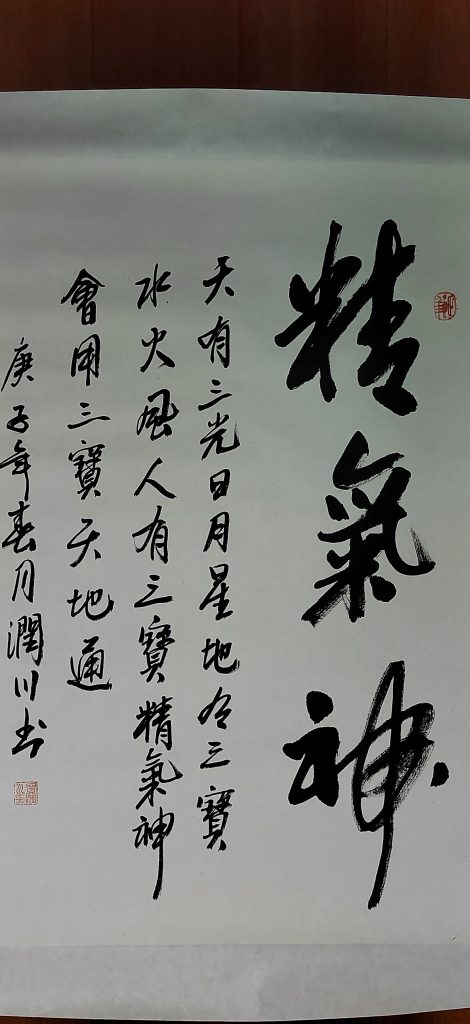 精氣神
天有三光日月星地有三寶
水火風人有三寶精氣神
會用三寶天地通
庚子年春月潤川书